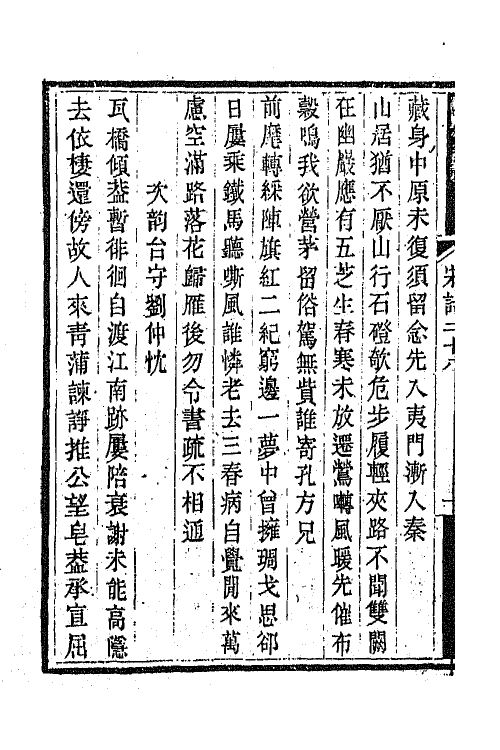 藏身中原未復須留念先入夷門漸入秦
山居猶不厭山行石磴欹危步履輕夾路不聞雙闕
在幽巖應有五芝生春寒未放遷鶯囀風暖先催布
穀鳴我欲營茅留俗駕無貲誰寄孔方兄
前麾轉綵陣旗紅二紀窮邊一夢中曾擁琱戈思卻
日屢乘鐵馬聽嘶風誰憐老去三春病自覺閒來萬
慮空滿路落花歸雁後勿令書疏不相通
次韵台守劉仲忱
瓦橋傾葢暫徘徊自渡江南跡屢陪衰謝未能高隱
去依棲還傍故人來青蒲諫諍推公望皂葢承宣屈